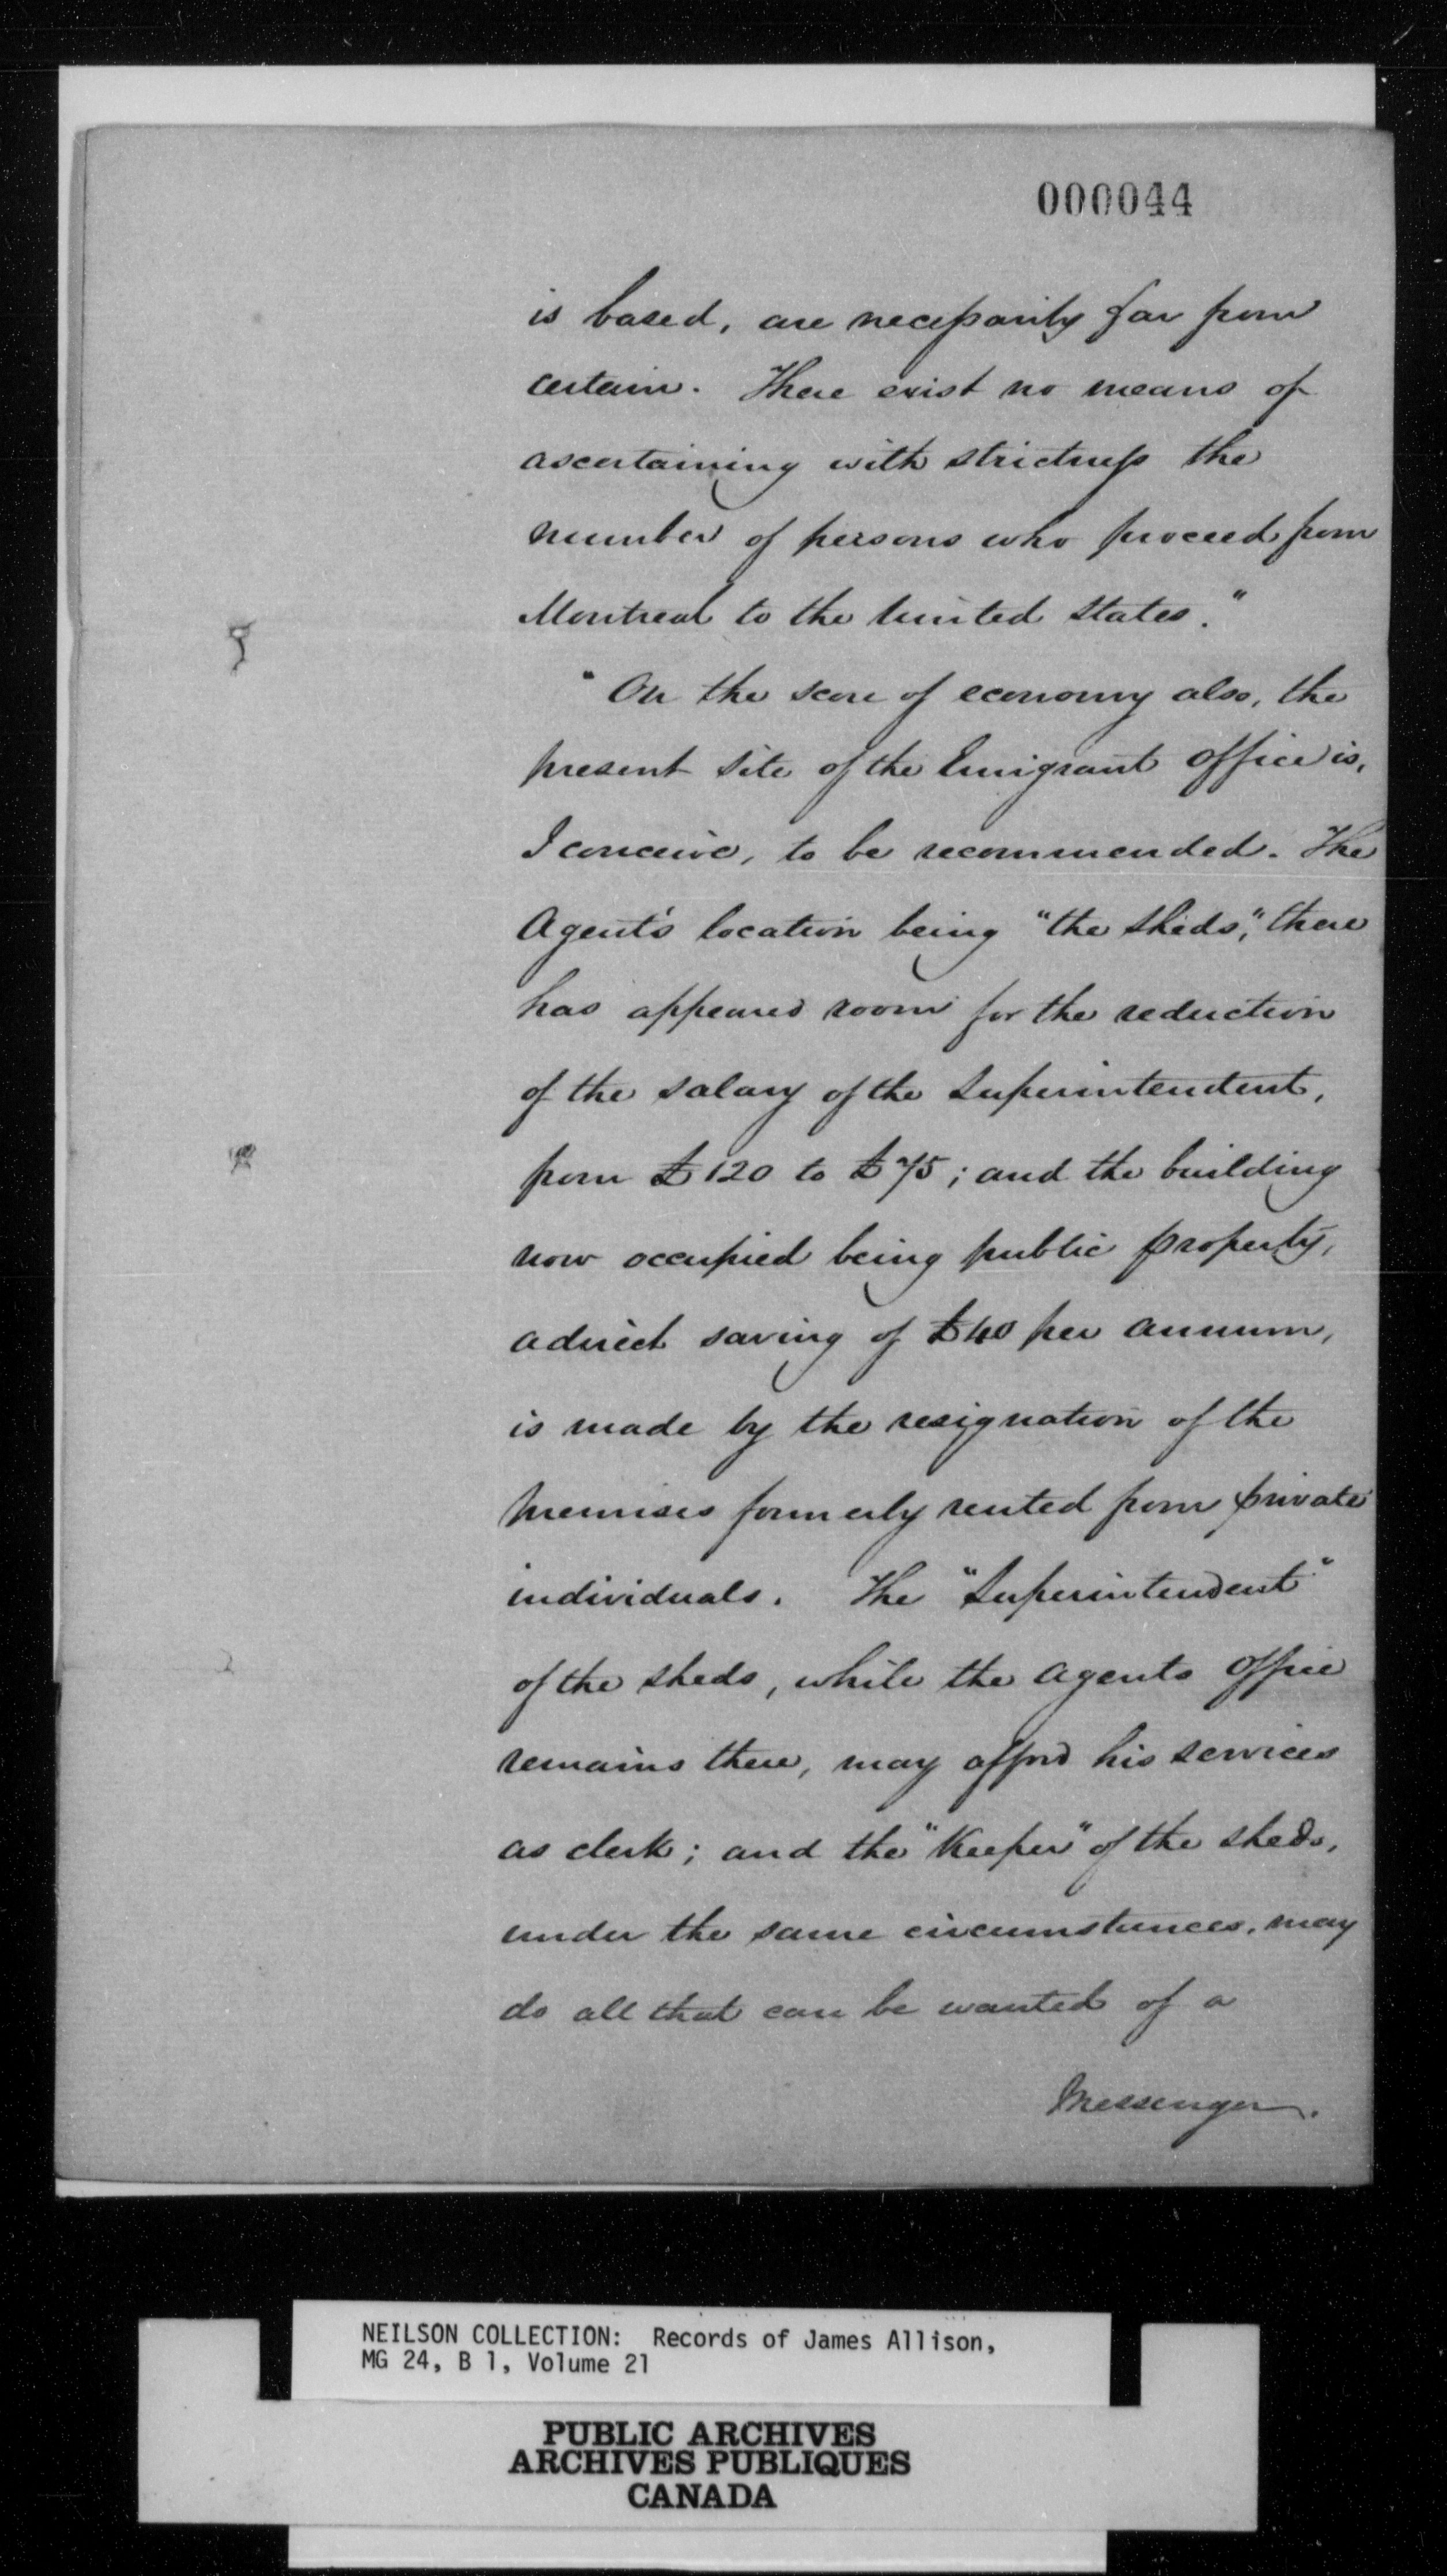 000044
is based, are necessarily far from
certain. There exist no means of
ascertaining with strictness the
number of persons who proceed from
Montreal to the United States."
"On the score of economy also, the
present site of the Emigrant Office is,
I conceive, to be recommended. The
Agent's location being "the Sheds", there
has appeared room for the reduction
of the salary of the Superintendent,
from £120 to £75; and the building
now occupied being public property,
a direct saving of £40 per annum,
is made by the resignation of the
premises formerly rented from private
individuals. The "Superintendent"
of the sheds, while the Agents Office
remains there, may afford his services
as clerk; and the "Keeper" of the sheds,
under the same circumstances, may
do all that can be wanted of a
Messenger.
NEILSON COLLECTION: Records of James Allison,
MG 24, B 1, Volume 21
PUBLIC ARCHIVES
ARCHIVES PUBLIQUES
CANADA